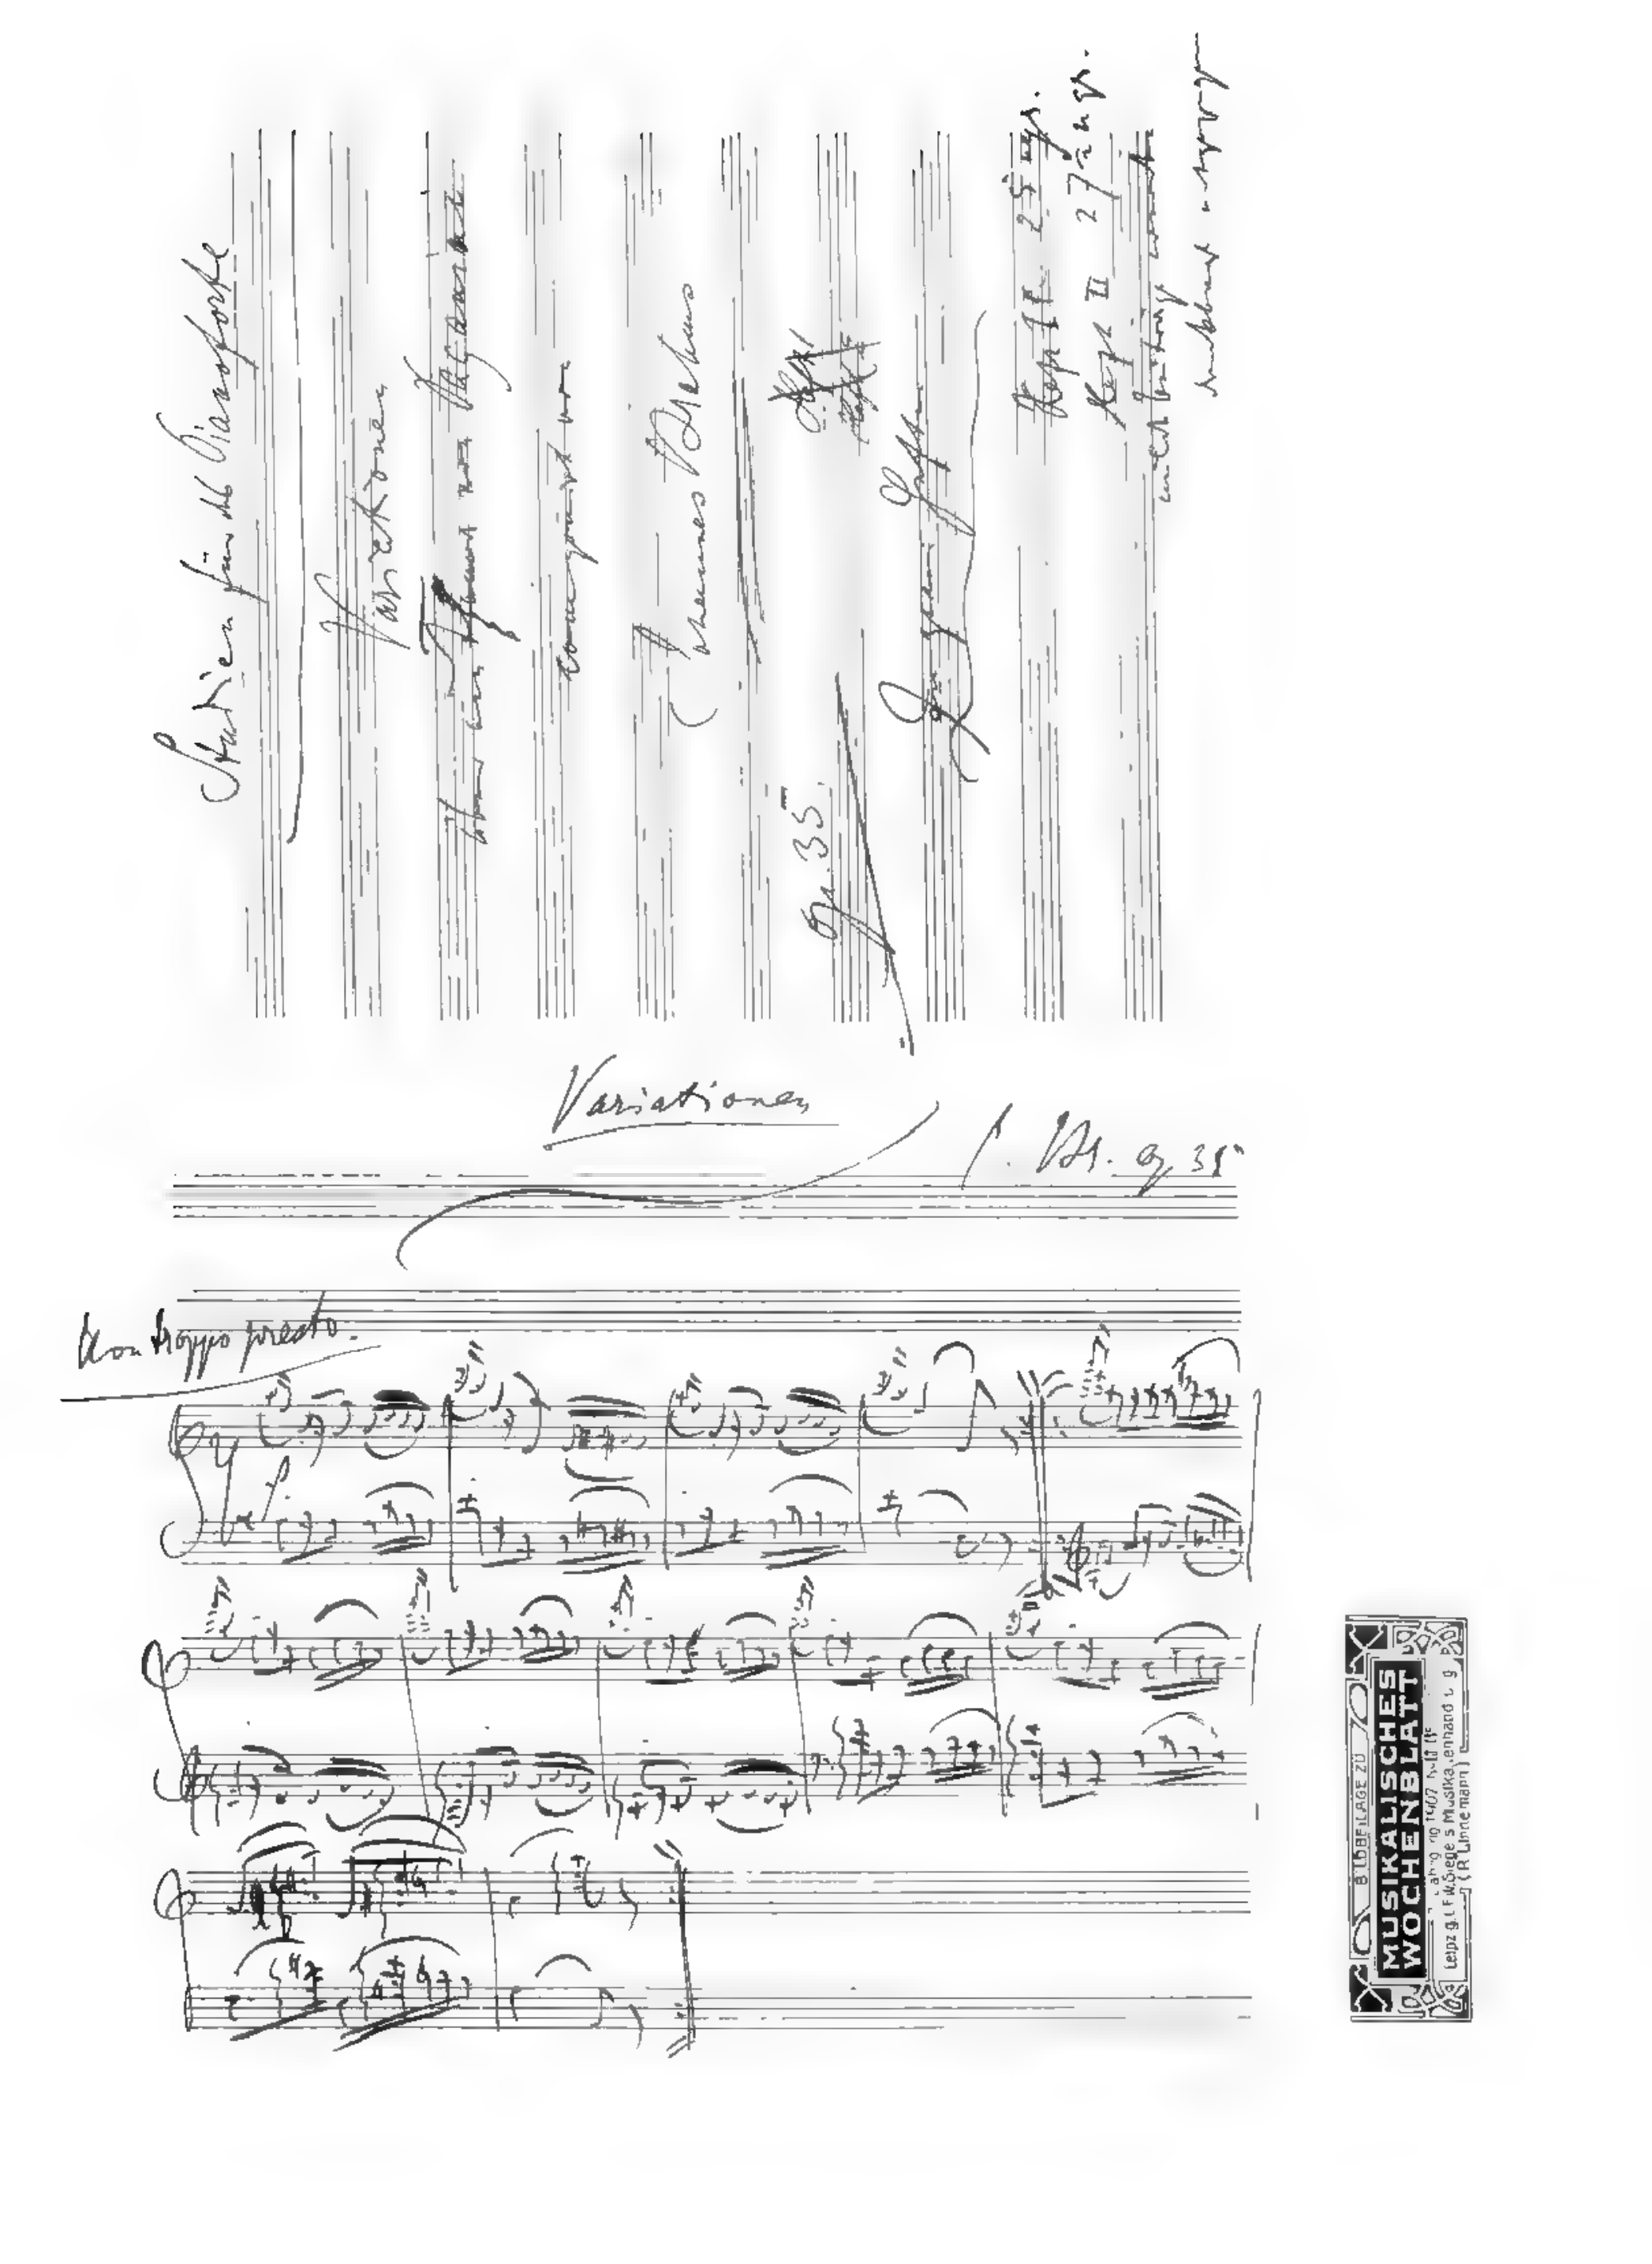 Studien für das Pianoforte
Variationen
über ein Thema von Paganini
componirt von
Johannes Brahms
op. 35.
In zwei Heften
Heft I. 25 ngr.
Heft II 27½ ngr.
Variationen
J. Br. op 35
Non troppo presto.
f.
BILDBEILAGE ZU
MUSIKALISCHES
WOCHENBLATT
(R. Lindemann)